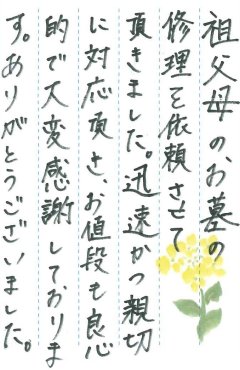 祖父母のお墓の
修理を依頼させて
頂きました。迅速かつ親切
に対応頂き、お値段も良心
的で大変感謝しておりま
す。ありがとうございました。